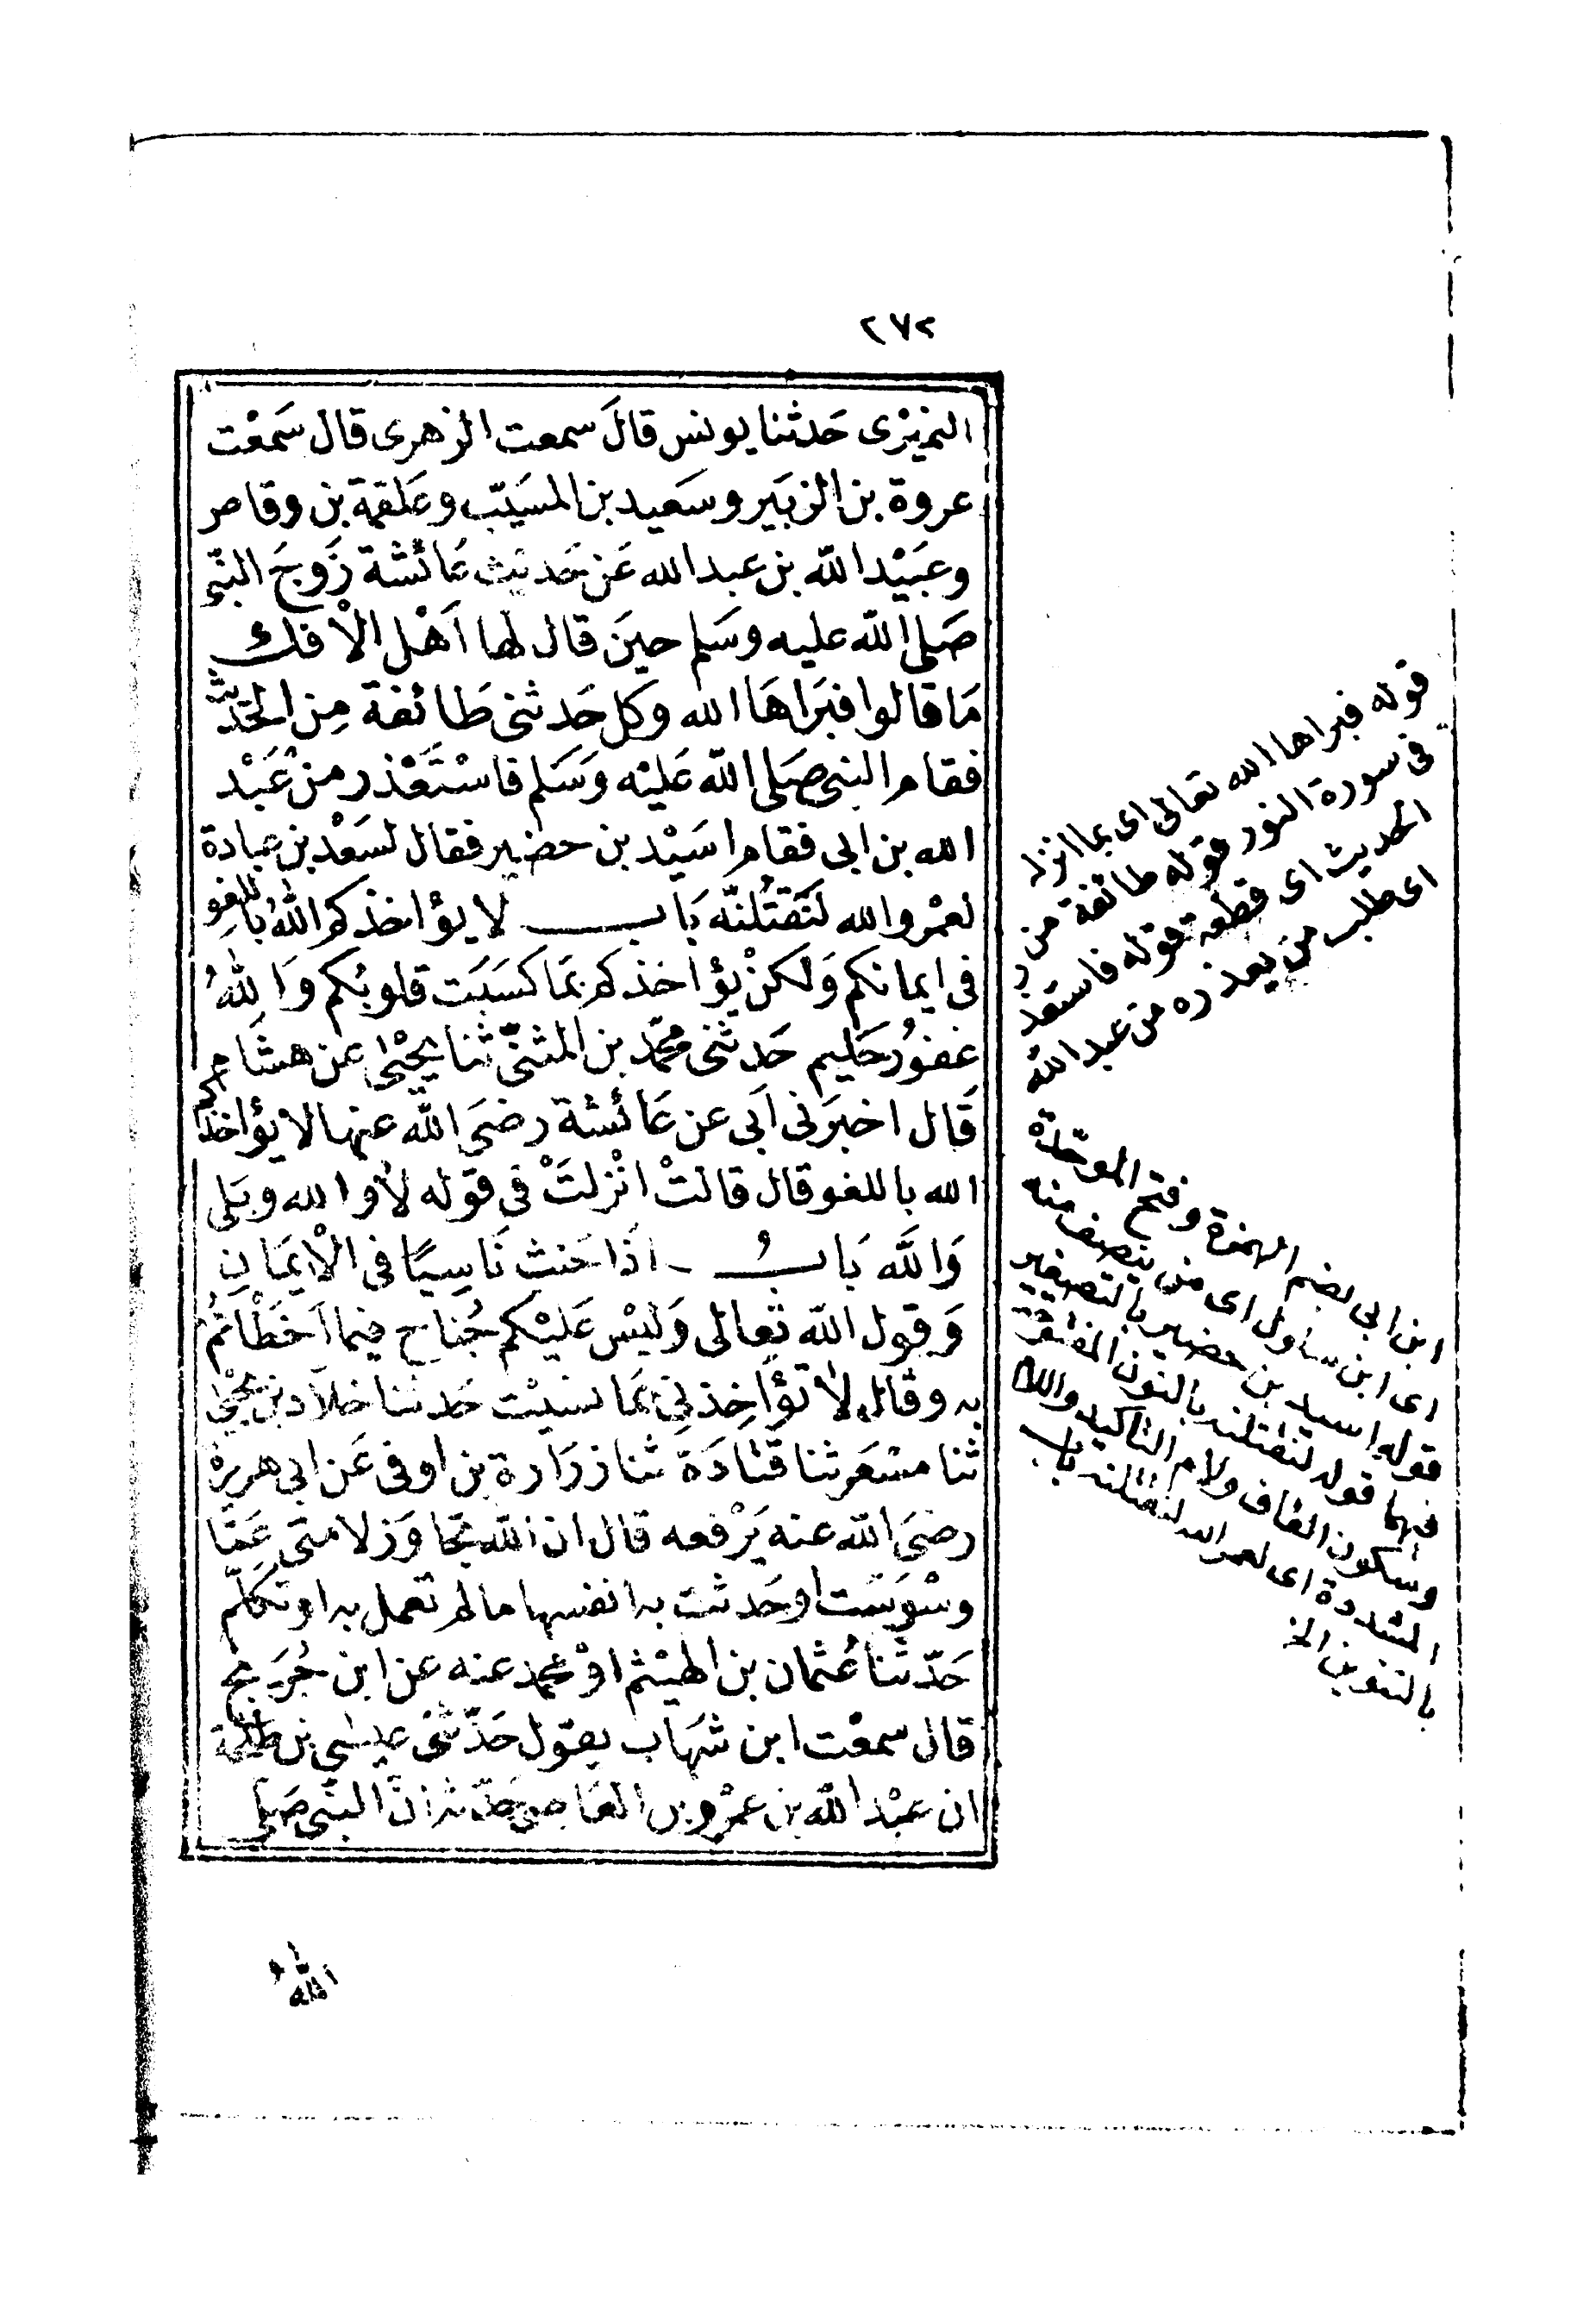 ٢٧٢
النميْرى حَدثنا يونس قالَ سمعت الزهرى قال سَمعْت
عروة بن الزبَير وسَعيد بن المسَيّب وعَلقمة بن وقاص
وعبَيْد اللّه بن عبد الله عَن حَديث عَائشة زَوجَ النبّى
صَلى اللّه عليه وسَلم حينَ قال لها اَهْل الْافك
مَا قالوا فبَراهَا الله وكل حَدثنى طَائفة مِن الحَديث
فقام النبى صَلى اللّه عَليْه وَسَلم فاسْتَعْذر منْ عَبْد
الله بن ابى فقام اسَيْد بن حضير فقال لسَعْد بن عبادة
لعمْر والله لنَقتُلنّه بَاب لا يؤاخذكم اللّهُ باللغو
فى ايمانكم وَلكنْ يؤاخذكم بمَا كسَبَت قلوبُكم وَاللّهُ
غفورُ حَليم حَدثنى محمّد بن المثنىّ ثنا يحْيٰى عن هشَام
قَال اخبرَنى اَبى عن عَائشة رضىَ اللّه عنها لا يؤاخذكم
الله باللغو قال قالتْ انْزلتَْ فى قوله لا والله وبَلى
وَاللَّه بَابُ اذَا حَنث نَاسِيًا فى الْايمَانِ
وَقول اللّه تعالى وَليْس عَليْكم جُناح فيما اَخطَْاتمُ
به وقال لا تؤَاخِذنِى بمَا نسيْت حَدثنا خلاّد بن يحْيٰى
ثنا مسْعَر ثنا قَتَادَة ثنا زرَارة بن اوفى عَن ابى هريرْة
رضىَ اللّه عنه يَرْفعه قال ان اللّه تجاوَز لامتى عَمّا
وسْوسَت او حَدثت به انفسها ما لم تعمل به او تكَلّم
حَدّثنا عُثمان بن الهيْثم اوْ محمد عنه عن ابن جُرَيج
قال سمعْت ابن شهَاب يقوّل حَدّثنى عيسٰى بن طلحة
ان عبْد اللّه بن عمْرو بن العَاصى حَدّثه انّ النبّى صَلى
اللّهُ
قوله فبراها الله تعالى اى بما انزله
فى سورة النور قوله طائفة من
الحديث اى قطعة قوله فاستعذر
اى طلب من يعذره من عبد الله
ابن ابى بضم الهمزة وفتح الموحّدة
اى ابن سلول اى من ينصف منه
قوله اسيد بن حضير بالتصغير
فيهما قوله لنقتلنه بالنون المفتوحة
وسكون القاف ولام التاكيد واللام
المشددة اى لعمر الله لنقتلنه باب
بالتنوين الخ